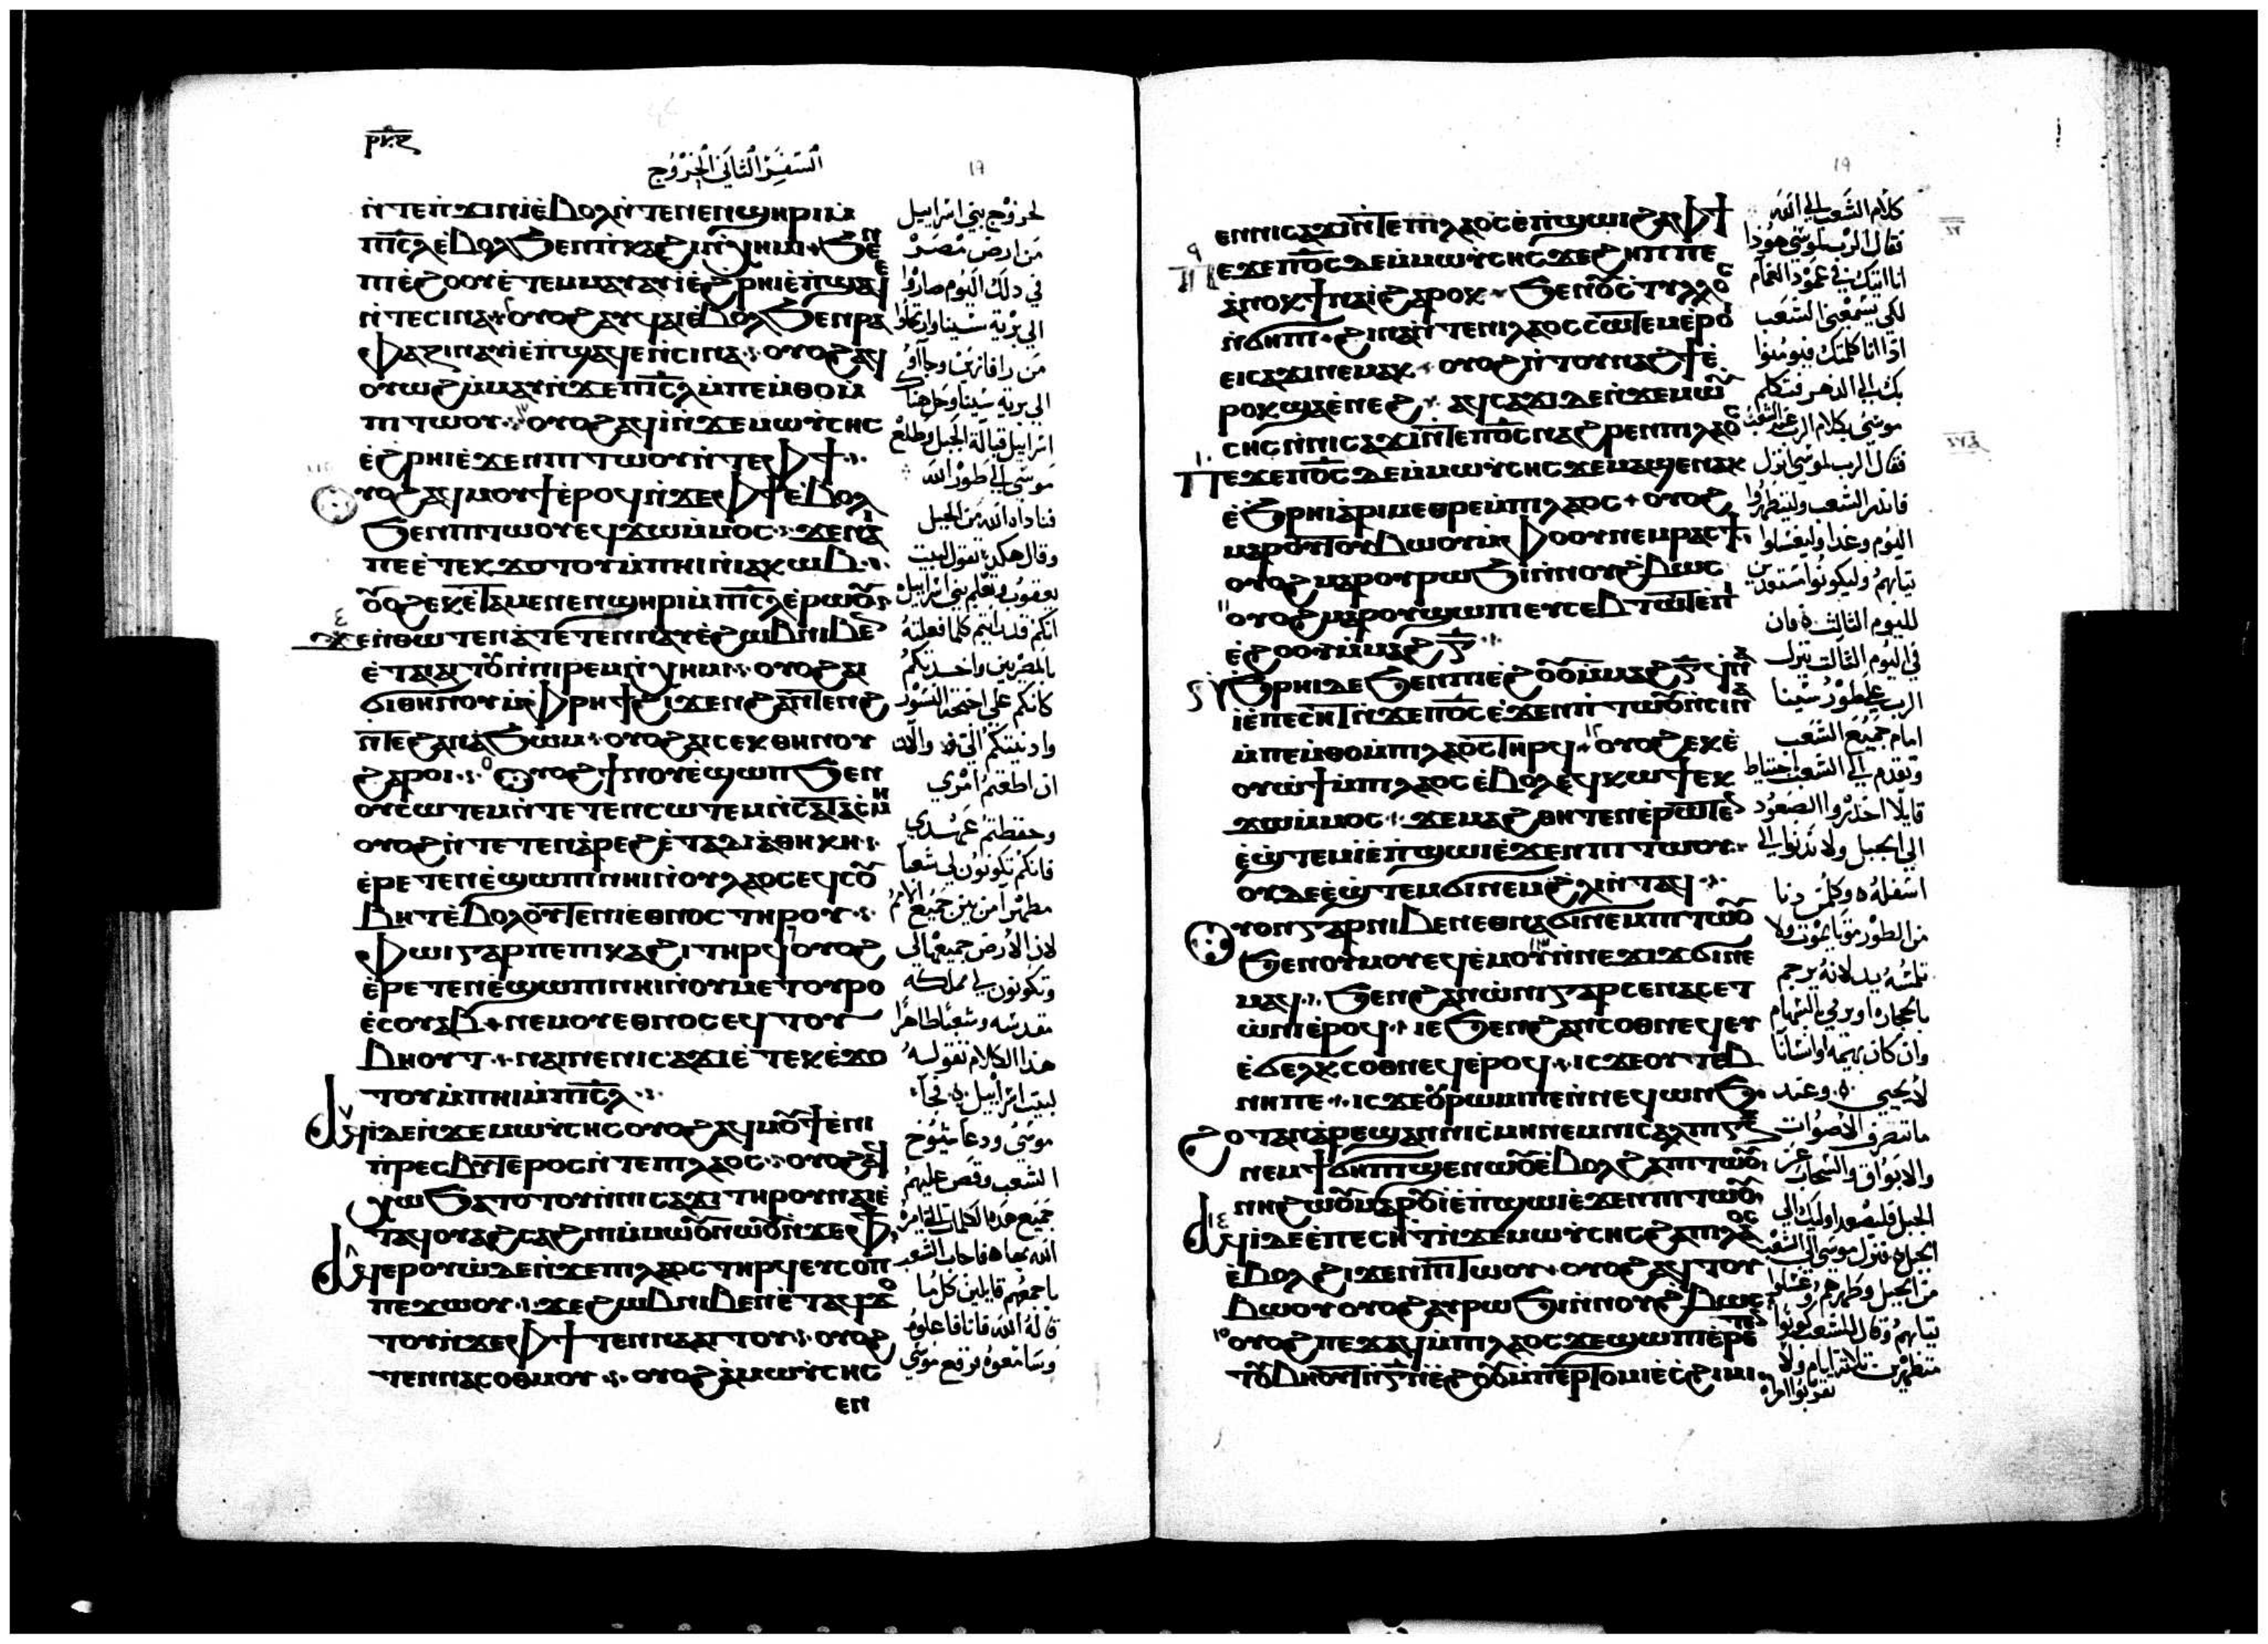 ⲣⲕ̅ⲋ
السفر الثاني الخروج
19
ⲛ̀ⲧⲉⲡϫⲓⲛⲓⲉ̀ⲃⲟⲗⲛ̀ⲧⲉⲛⲉⲛϣⲏⲣⲓⲙ̀
ⲡⲓⲥ̅ⲗⲉ̀ⲃⲟⲗϧⲉⲛⲡⲕⲁϩⲓⲛ̀ⲭⲏⲙⲓ ϧⲉⲛ
ⲡⲓⲉ̀ϩⲟⲟⲩⲉ̀ⲧⲉⲙⲙⲁⲩⲁⲩⲓⲉ̀ϩⲣⲏⲓⲉ̀ⲡϣⲁϥⲉ
ⲛ̀ⲧⲉⲥⲓⲛⲁ ⲟⲩⲟϩⲁⲩϥⲁⲓⲉ̀ⲃⲟⲗϧⲉⲛⲣⲁ
ⲫⲁⲍⲓⲛⲁⲩⲓⲉ̀ⲡϣⲁϥⲉⲛ̀ⲥⲓⲛⲁ ⲟⲩⲟϩⲁϥ
ⲟⲩⲱϩⲙ̀ⲙⲁⲩⲛ̀ϫⲉⲡⲓⲥ̅ⲗⲙ̀ⲡⲉⲙ̀ⲑⲟⲙ̀
ⲡⲓⲧⲱⲟⲩ ⲟⲩⲟϩⲁϥⲓⲛ̀ϫⲉⲙⲱⲩ̀ⲥⲏⲥ
ⲉ̀ϩⲣⲏⲓⲉ̀ϫⲉⲛⲡⲓⲧⲱⲟⲩⲛ̀ⲧⲉⲫϯ
ⲟⲩⲟϩⲁϥⲙⲟⲩϯⲉ̀ⲣⲟϥⲛ̀ϫⲉⲫϯⲉ̀ⲃⲟⲗ
ϧⲉⲛⲡⲓⲧⲱⲟⲩⲉϥϫⲱⲙ̀ⲙⲟⲥ ϫⲉⲛⲁⲓ
ⲡⲉⲉ̀ⲧⲉⲕϫⲟⲧⲟⲩⲙ̀ⲡⲏⲓⲛ̀ⲓⲁⲕⲱⲃ
ⲟⲩⲟϩⲉⲕⲉ̀ⲧⲁⲙⲉⲛⲉⲛϣⲏⲣⲓⲙ̀ⲡⲓⲥ̅ⲗⲉ̀ⲣⲱⲟⲩ
ϫⲉⲛ̀ⲑⲱⲧⲉⲛⲁ̀ⲧⲉⲧⲉⲛⲛⲁⲩⲉ̀ϩⲱⲃⲛⲓⲃⲉⲛ
ⲉ̀ⲧⲁⲓⲁⲓⲧⲟⲩⲛ̀ⲛⲓⲣⲉⲙⲛ̀ⲭⲏⲙⲓ ⲟⲩⲟϩⲁⲓ
ϭⲓⲑⲏⲛⲟⲩⲙ̀ⲫⲣⲏϯϩⲓϫⲉⲛϩⲁⲛⲧⲉⲛϩ
ⲛ̀ⲧⲉϩⲁⲛⲁ̀ϧⲱⲙ ⲟⲩⲟϩⲁⲓⲥⲉⲕⲑⲏⲛⲟⲩ
ϩⲁⲣⲟⲓ ⲟⲩⲟϩϯⲛⲟⲩⲉ̀ϣⲱⲡϧⲉⲛ
ⲟⲩⲥⲱⲧⲉⲙⲛ̀ⲧⲉⲧⲉⲛⲥⲱⲧⲉⲙⲛ̀ⲥⲁⲧⲁⲥⲙⲏ
ⲟⲩⲟϩⲛ̀ⲧⲉⲧⲉⲛⲁ̀ⲣⲉϩⲉ̀ⲧⲁⲇⲓⲁ̀ⲑⲏⲕⲏ
ⲉ̀ⲣⲉⲧⲉⲛⲉ̀ϣⲱⲡⲓⲛⲏⲓⲛ̀ⲟⲩⲗⲁⲟⲥⲉϥⲥⲟⲩ
ⲃⲏⲧⲉ̀ⲃⲟⲗⲟⲩⲧⲉⲛⲓⲉⲑⲛⲟⲥⲧⲏⲣⲟⲩ
ⲫⲱⲓⲅⲁⲣⲡⲉⲡⲓⲕⲁϩⲓⲧⲏⲣϥ ⲟⲩⲟϩ
ⲉ̀ⲣⲉⲧⲉⲛⲉ̀ϣⲱⲡⲓⲛⲏⲓⲛ̀ⲟⲩⲙⲉⲧⲟⲩⲣⲟ
ⲉ̀ⲥⲟⲩⲁⲃ ⲛⲉⲙⲟⲩⲉⲑⲛⲟⲥⲉϥⲧⲟⲩ
ⲃⲏⲟⲩⲧ ⲛⲁⲓⲛⲉⲛⲓⲥⲁϫⲓⲉ̀ⲧⲉⲕⲉ̀ϫⲟ
ⲧⲟⲩⲙ̀ⲡⲏⲓⲙ̀ⲡⲓⲥ̅ⲗ
ⲁϥⲓ̀ⲇⲉⲛ̀ϫⲉⲙⲱⲩ̀ⲥⲏⲥⲟⲩⲟϩⲁϥⲙⲟⲩϯⲉ̀ⲛⲓ
ⲡ̀ⲣⲉⲥⲃⲩⲧⲉⲣⲟⲥⲛ̀ⲧⲉⲡⲓⲗⲁⲟⲥ ⲟⲩⲟϩⲁϥ
ⲭⲱϧⲁⲧⲟⲧⲟⲩⲛ̀ⲛⲓⲥⲁϫⲓⲧⲏⲣⲟⲩⲛⲁⲓⲉ̀
ⲧⲁϥⲟⲩⲁϩⲥⲁϩⲛⲓⲙ̀ⲙⲱⲟⲩⲛⲱⲟⲩⲛ̀ϫⲉⲫϯ
ⲁϥⲉⲣⲟⲩⲱ̀ⲇⲉⲛ̀ϫⲉⲡⲓⲗⲁⲟⲥⲧⲏⲣϥⲉⲩⲥⲟⲡ
ⲡⲉϫⲱⲟⲩ ϫⲉϩⲱⲃⲛⲓⲃⲉⲛⲉ̀ⲧⲁϥϫⲟ
ⲧⲟⲩⲛ̀ϫⲉⲫϯⲧⲉⲛⲛⲁⲁⲓⲧⲟⲩ ⲟⲩⲟϩ
ⲧⲉⲛⲛⲁⲥⲟⲑⲙⲟⲩ ⲟⲩⲟϩⲁ̀ⲙⲱⲩ̀ⲥⲏⲥ
ⲉⲛ
لخروج بني اسراييل
من ارض مصر
في ذلك اليوم صاروا
الي برية سينا وارتحلوا
من رافازين وجاؤا
الي برية سينا وحل هناك
اسراييل قبالة الجبل وطلع
موسى الي طور الله
فناداه الله من الجبل
وقال هكذا تقول لبيت
يعقوب وتعلم بني اسراييل
انكم قد رايتم كلما فعلته
بالمصريين واخذتكم
كانكم علي اجنحة النسور
وادنيتكم الي والان
ان اطعتم امري
وحفظتم عهدي
فانكم تكونون لي شعباً
مطهراً من بين جميع الامم
لان الارض جميعها لي
وتكونون لي مملكة
مقدسه وشعبا طاهراً
هذا الكلام تقوله
لبيت اسراييل فجاء
موسى ودعا شيوخ
الشعب وقص عليهم
جميع هذه الكلمات التي امره
الله بها فاجاب الشعب
باجمعهم قايلين كل ما
قاله الله فانا فاعلوه
وسامعوه فرفع موسى
19
ⲉⲛⲛⲓⲥⲁϫⲓⲛ̀ⲧⲉⲡⲓⲗⲁⲟⲥⲉ̀ⲡϣⲱⲓϩⲁⲫϯ
ⲡⲉϫⲉⲡ⳪ⲇⲉⲙ̀ⲙⲱⲩ̀ⲥⲏⲥϫⲉϩⲏⲡⲡⲉ
ⲁ̀ⲛⲟⲕϯⲛⲁⲓ̀ϩⲁⲣⲟⲕ ϧⲉⲛⲟⲩⲥⲧⲩⲗⲗⲟⲥ
ⲛ̀ϭⲏⲡⲓ ϩⲓⲛⲁⲛ̀ⲧⲉⲡⲓⲗⲁⲟⲥⲥⲱⲧⲉⲙⲉ̀ⲣⲟⲓ
ⲉⲓⲥⲁϫⲓⲛⲉⲙⲁⲕ ⲟⲩⲟϩⲛ̀ⲧⲟⲩⲛⲁϩϯⲉ̀
ⲣⲟⲕϣⲁⲉ̀ⲛⲉϩ ⲁϥⲥⲁϫⲓⲇⲉⲛ̀ϫⲉⲙⲱⲩ̀
ⲥⲏⲥⲛ̀ⲛⲓⲥⲁϫⲓⲛ̀ⲧⲉⲡ⳪ⲛⲁϩⲣⲉⲛⲡⲓⲗⲁⲟⲥ
ⲡⲉϫⲉⲡ⳪ⲇⲉⲙ̀ⲙⲱⲩ̀ⲥⲏⲥϫⲉⲙⲁϣⲉⲛⲁⲕ
ⲉ̀ϧⲣⲏⲓⲁ̀ⲣⲓⲙⲉⲑⲣⲉⲙ̀ⲡⲓⲗⲁⲟⲥ ⲟⲩⲟϩ
ⲙⲁⲣⲟⲩⲧⲟⲩⲃⲱⲟⲩⲙ̀ⲫⲟⲟⲩⲛⲉⲙⲣⲁⲥϯ
ⲟⲩⲟϩⲙⲁⲣⲟⲩⲣⲱϧⲓⲛ̀ⲛⲟⲩϩⲃⲱⲥ
ⲟⲩⲟϩⲙⲁⲣⲟⲩϣⲱⲡⲓⲉⲩⲥⲉⲃⲧⲱⲧⲉⲡⲓ
ⲉ̀ϩⲟⲟⲩⲙ̀ⲙⲁϩⲅ̅
ⲛ̀ϩⲣⲏⲓⲇⲉϧⲉⲛⲡⲓⲉ̀ϩⲟⲟⲩⲙ̀ⲙⲁϩⲅ̅ϥⲛⲁ
ⲓ̀ⲉ̀ⲡⲉⲥⲏⲧⲛ̀ϫⲉⲡ⳪ⲉ̀ϫⲉⲛⲡⲓⲧⲱⲟⲩⲛ̀ⲥⲓⲛⲁ
ⲙ̀ⲡⲉⲙ̀ⲑⲟⲙ̀ⲡⲓⲗⲁⲟⲥⲧⲏⲣϥ ⲟⲩⲟϩⲉⲕⲉ̀
ⲟⲩⲱϯⲙ̀ⲡⲓⲗⲁⲟⲥⲉ̀ⲃⲟⲗⲉϥⲕⲱϯⲉⲕ
ϫⲱⲙ̀ⲙⲟⲥ ϫⲉⲙⲁϩⲑⲏⲧⲉⲛⲉ̀ⲣⲱⲧⲉⲛ
ⲉ̀ϣ̀ⲧⲉⲙⲓⲉ̀ⲡϣⲱⲓⲉ̀ϫⲉⲛⲡⲓⲧⲱⲟⲩ
ⲟⲩⲇⲉⲉ̀ϣ̀ⲧⲉⲙϭⲓⲛⲉⲙϩⲗⲓⲛ̀ⲧⲁϥ
ⲟⲩⲟⲛⲅⲁⲣⲛⲓⲃⲉⲛⲉⲑⲛⲁϭⲓⲛⲉⲙⲡⲓⲧⲱⲟⲩ
ϧⲉⲛⲟⲩⲙⲟⲩⲉϥⲉ̀ⲙⲟⲩ ⲛ̀ⲛⲉϫⲓϫϭⲓⲛⲉ
ⲙⲁϥ ϧⲉⲛϩⲁⲛⲱ̀ⲛⲓⲅⲁⲣⲥⲉⲛⲁⲥⲉⲧ
ⲱ̀ⲛⲓⲉ̀ⲣⲟϥ ⲓⲉϧⲉⲛϩⲁⲛⲥⲟⲑⲛⲉϥⲉⲩ
ⲉ̀ϭⲉⲗϫⲥⲟⲑⲛⲉϥⲉ̀ⲣⲟϥ ⲓⲥϫⲉⲟⲩⲧⲉⲃ
ⲛⲏⲡⲉ ⲓⲥϫⲉⲟⲩⲣⲱⲙⲓⲡⲉⲛ̀ⲛⲉϥⲱⲛϧ
ϩⲟⲧⲁⲛⲁ̀ⲣⲉϣⲁⲛⲛⲓⲥⲙⲏⲛⲉⲙⲛⲓⲥⲁⲗⲡⲓⲅⲝ
ⲛⲉⲙϯϭⲏⲡⲓϣⲉⲛⲱⲟⲩⲉ̀ⲃⲟⲗϩⲁⲡⲓⲧⲱⲟⲩ
ⲛⲏϩⲱⲟⲩⲙⲁⲣⲟⲩⲓ̀ⲉ̀ⲡϣⲱⲓⲉ̀ϫⲉⲛⲡⲓⲧⲱⲟⲩ
ⲁϥⲓ̀ⲇⲉⲉ̀ⲡⲉⲥⲏⲧⲛ̀ϫⲉⲙⲱⲩ̀ⲥⲏⲥϩⲁⲡⲓⲗⲁⲟⲥ
ⲉ̀ⲃⲟⲗϩⲓϫⲉⲛⲡⲓⲧⲱⲟⲩ ⲟⲩⲟϩⲁϥⲧⲟⲩ
ⲃⲱⲟⲩⲟⲩⲟϩⲁⲩⲣⲱϧⲓⲛ̀ⲛⲟⲩϩⲃⲱⲥ
ⲟⲩⲟϩⲡⲉϫⲁϥⲙ̀ⲡⲓⲗⲁⲟⲥϫⲉϣⲱⲡⲓⲉ̀ⲣⲉⲧⲉⲛ
ⲧⲟⲩⲃⲏⲟⲩⲧⲛ̀ⲅ̅ⲛ̀ⲉ̀ϩⲟⲟⲩⲙ̀ⲡⲉⲣⲧⲟⲙⲓⲉ̀ⲥϩⲓⲙⲓ
كلام الشعب الي الله
فقال الرب لموسى هوذا
انا اتيك في عمود الغمام
لكي يسمعني الشعب
اذا انا كلمتك فيومنوا
بك الي الدهر فتكلم
موسى بكلام الرب عند الشعب
فقال الرب لموسى انزل
فانذر الشعب وليتطهروا
اليوم وغدا وليغسلوا
ثيابهم وليكونوا مستعدين
لليوم الثالث فان
في اليوم الثالث ينزل
الرب علي طور سينا
امام جميع الشعب
وتقدم الي الشعب
قايلا احذروا الصعود
الي الجبل ولا تدنوا الي
اسفله وكلمن دنا
من الطور موتا يموت ولا
تلمسه يد لانه يرجم
بالحجاره او يرمي بالسهام
وان كان بهيمه او انسانا
لا يحيى وعند
ما تنصرف الاصوات
والابواق والسحاب عن
الجبل فليصعد اوليك الي
الجبل فنزل موسى الي الشعب
من الجبل وطهرهم وغسلوا
ثيابهم وقال للشعب كونوا
متطهرين ثلاثة ايام ولا
تقربوا امراه